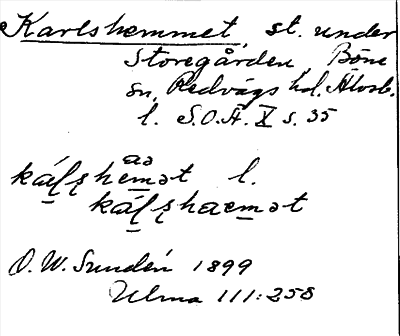 Karlshemmet, st. under
Storegården, Böne
sn, Redvägs hd. Älvsb.
l. S.O.Ä. X s. 35
káɭʂhemət l.
káɭʂhæemət
O. W. Sundén 1899
Ulma 111:258